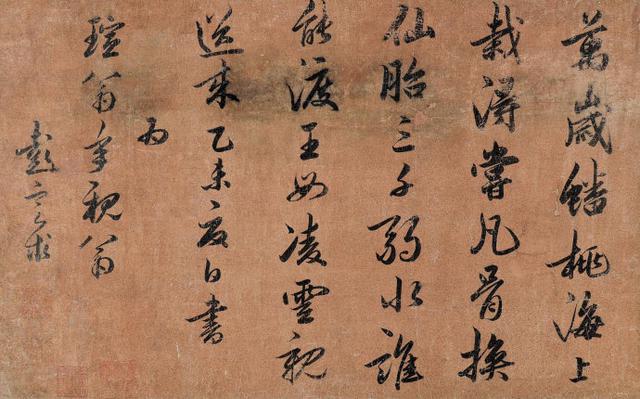 萬歲蟠桃海上
栽得嘗凡骨換
仙胎三千弱水誰
能渡王母凌雲親
送来乙未夏日書
為
瑄翁年親翁
彭